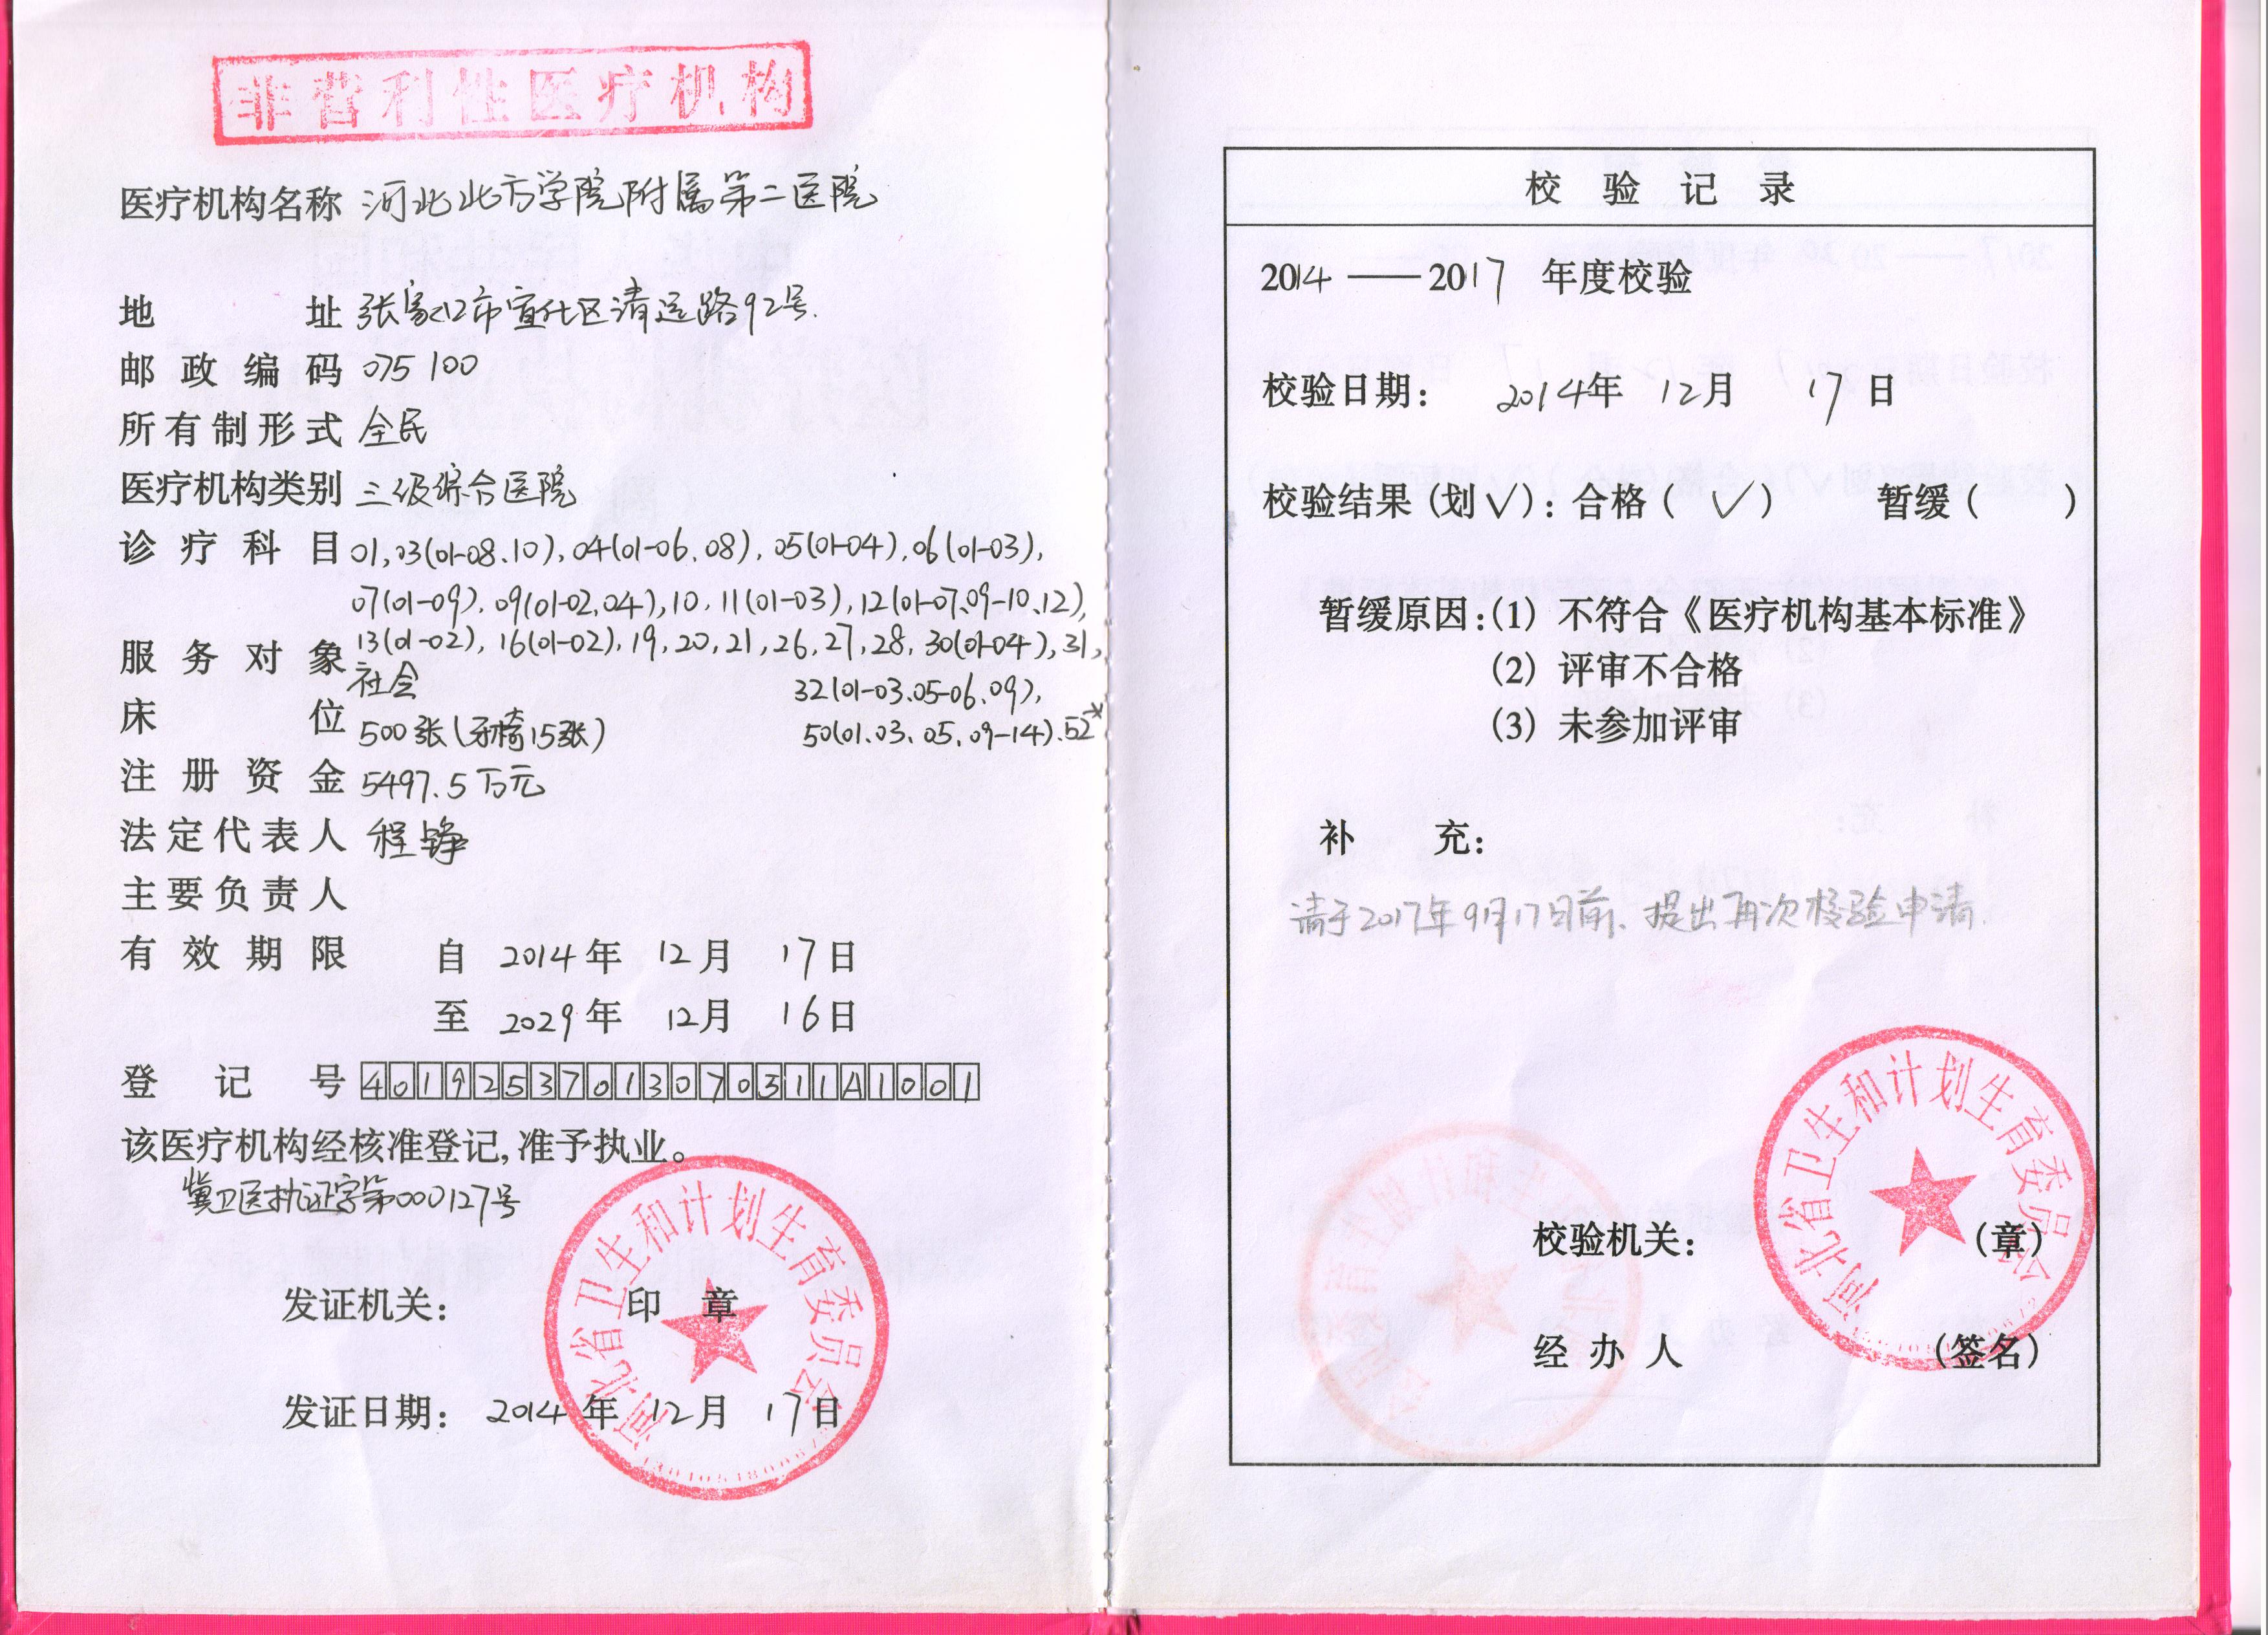 非营利性医疗机构
医疗机构名称 河北北方学院附属第二医院
地址 张家口市宣化区清远路92号.
邮政编码 075100
所有制形式 全民
医疗机构类别 三级综合医院
诊疗科目 01,03(01-08.10),04(01-06.08),05(01-04),06(01-03),
07(01-09),09(01-02.04),10,11(01-03),12(01-07.09-10.12),
13(01-02),16(01-02),19,20,21,26,27,28,30(01-04),31,
32(01-03.05-06.09),
50(01.03.05.09-14).52*
服务对象 社会
床位 500张(牙椅15张)
注册资金 5497.5万元
法定代表人 程铮
主要负责人
有效期限 自 2014年 12月 17日
至 2029年 12月 16日
登记号 40192537013070311A1001
该医疗机构经核准登记,准予执业。
冀卫医执证字第000127号
发证机关: 印章
发证日期: 2014年 12月 17日
河北省卫生和计划生育委员会
校验记录
2014——2017 年度校验
校验日期: 2014年 12月 17日
校验结果(划√):合格(√) 暂缓( )
暂缓原因:(1) 不符合《医疗机构基本标准》
(2) 评审不合格
(3) 未参加评审
补充:
请于2017年9月17日前、提出再次校验申请.
校验机关: (章)
经办人 (签名)
河北省卫生和计划生育委员会